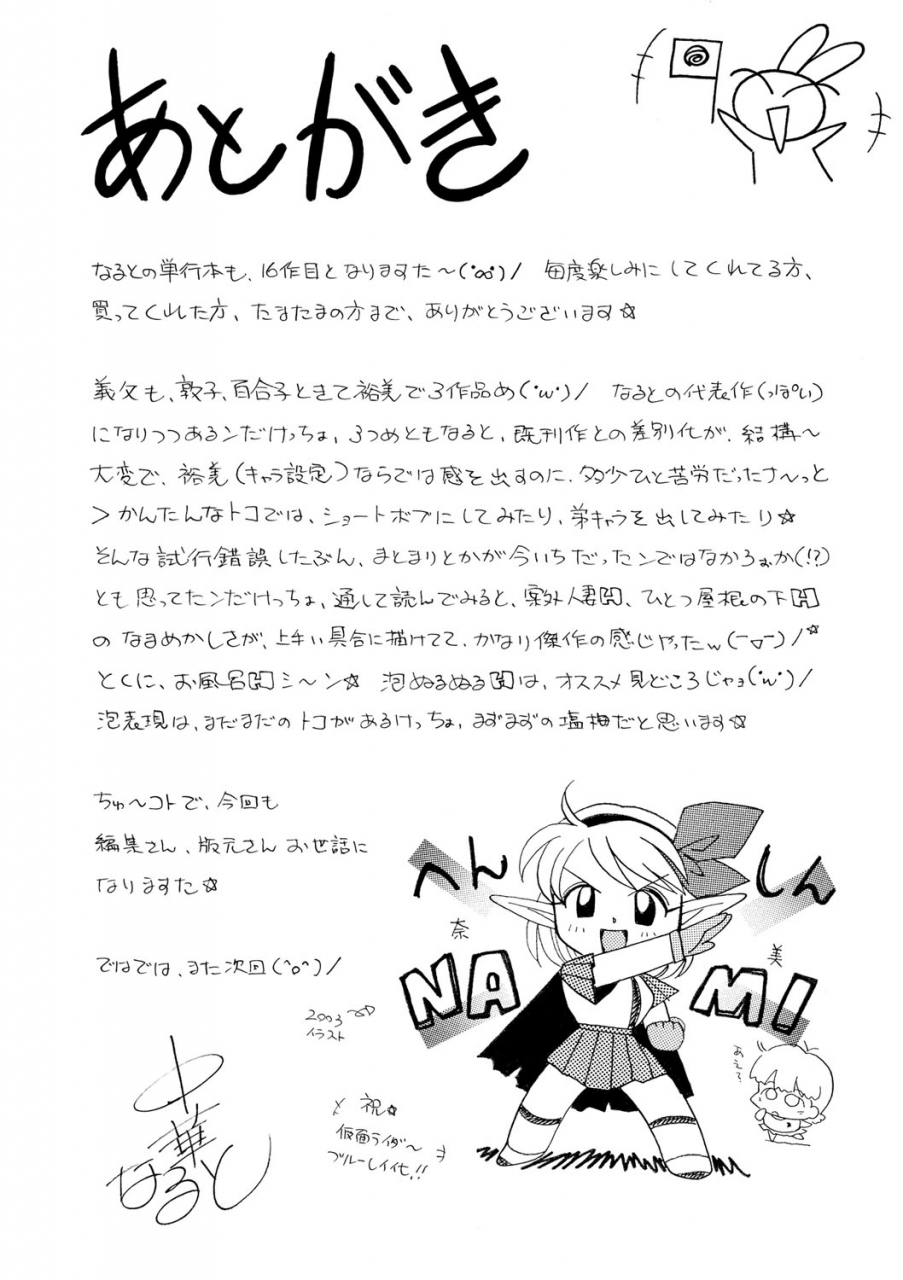 あとがき
なるとの単行本も、16作目となりますた〜(°∞°)/ 毎度楽しみにしてくれてる方、
買ってくれた方、たまたまの方まで、ありがとうございます☆
義父も、敦子、百合子ときて裕美で3作品め(°w°)/ なるとの代表作(っぽい)
になりつつあるンだけっちょ、3つめともなると、既刊作との差別化が、結構〜
大変で、裕美(キャラ設定)ならでは感を出すのに、多少ひと苦労だったナ〜っと
>かんたんなトコでは、ショートボブにしてみたり、弟キャラを出してみたり☆
そんな試行錯誤したぶん、まとまりとかが今いちだったンではなかろぉか(!?)
とも思ってたンだけっちょ、通して読んでみると、案外人妻H、ひとつ屋根の下H
のなまめかしさが、上手い具合に描けてて、かなり傑作の感じやったw(ー▽ー)/☆
とくに、お風呂Hシ〜ン☆ 泡ぬるぬるHは、オススメ見どころじゃョ(°w°)/
泡表現は、まだまだのトコがあるけっちょ、まずまずの塩梅だと思います☆
ちゅ〜コトで、今回も
編集さん、版元さんお世話に
なりますた☆
ではでは、また次回(^o^)/
へん しん
奈 美
NA MI
2003
イラスト
あえて?
と 祝☆
仮面ライダ〜
ブルーレイ化!!
中華
なると